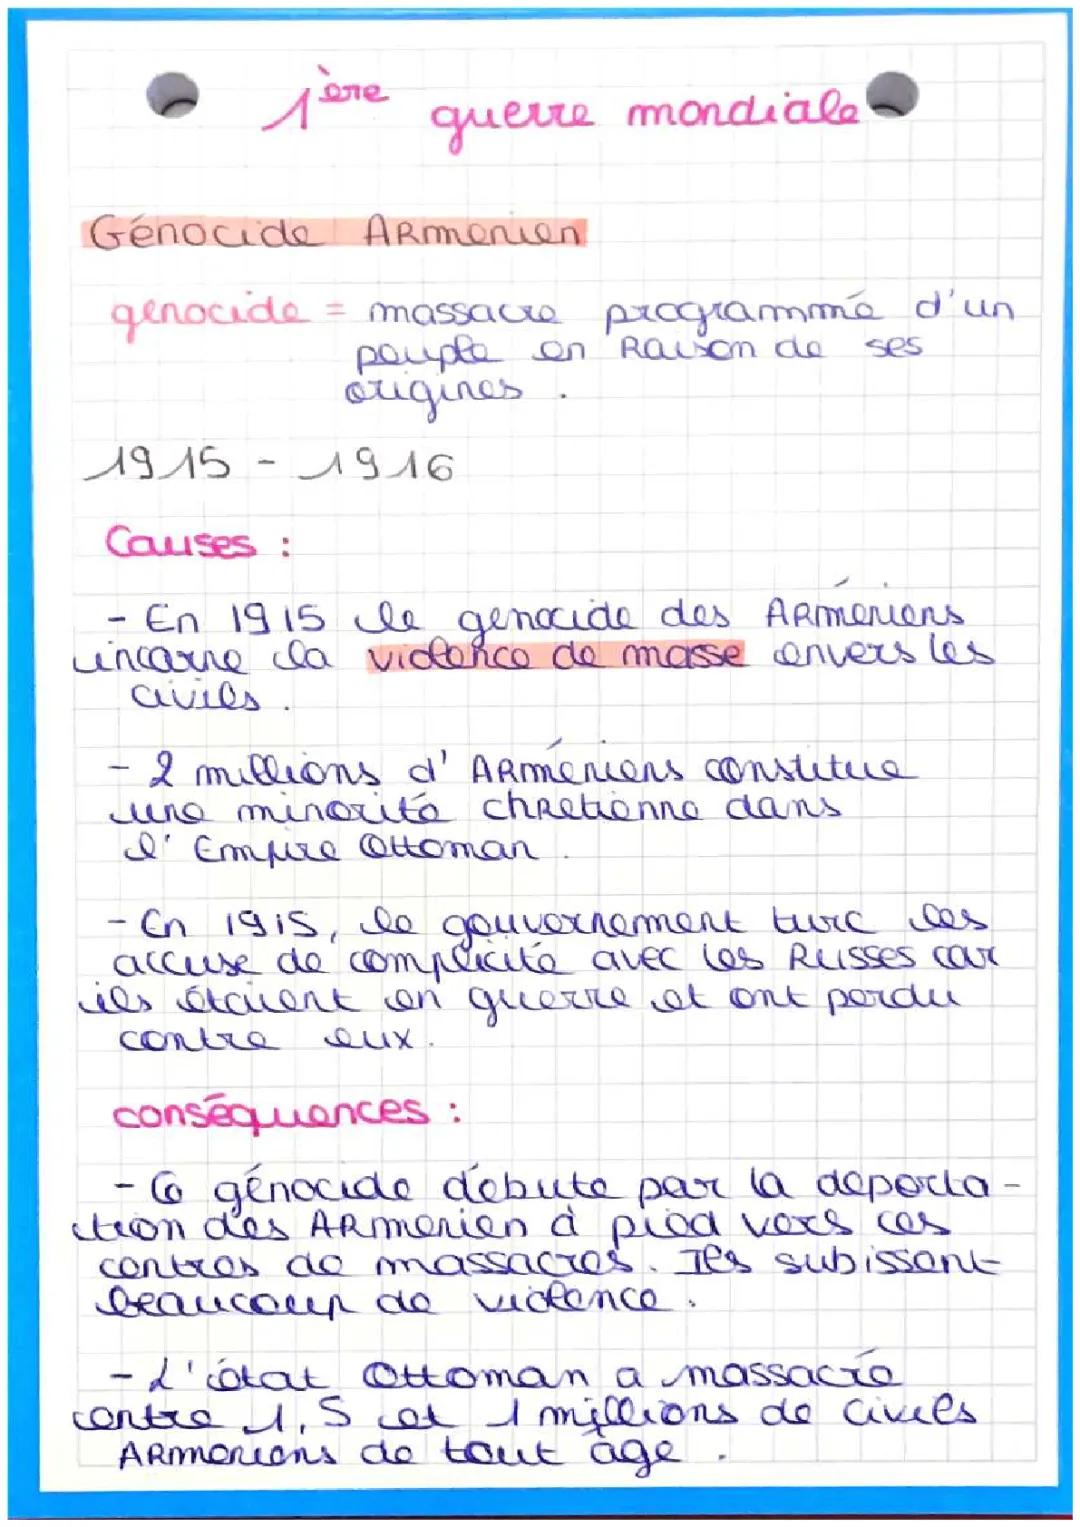 1ère guerre mondiale
Génocide Armenien
genocide = massacre programmé d'un
peuple en Raison de ses
origines.
1915 - 1916
Causes :
- En 1915 le genocide des Arméniens
incarne la violence de masse envers les
civils.
- 2 millions d'Arméniens constitue
une minorité chretienne dans
l'Empire Ottoman.
- En 1915, le gouvernement turc les
accuse de complicité avec les Russes car
ils étaient en guerre et ont perdu
contre eux.
conséquences :
- Ce génocide débute par la déporta-
tion des Armenien à pied vers ces
centres de massacres. Ils subissent
beaucoup de violence.
- L'état Ottoman a massacré
contre 1,5 et 1 millions de civils
Armeniens de tout âge.